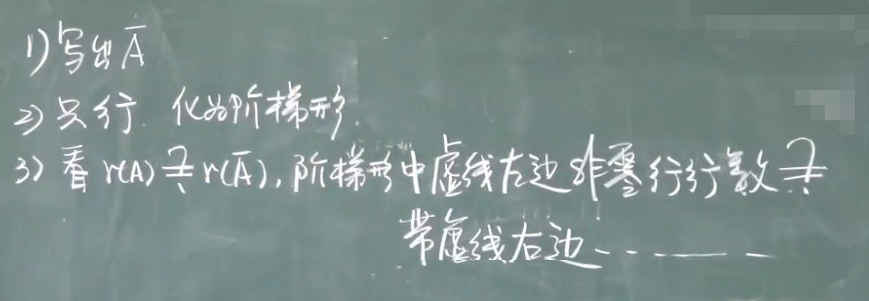 1) 写出Ā
2) 只行 化为阶梯形.
3) 看 r(A) ≟ r(Ā), 阶梯形中虚线左边非零行行数 ≟
带虚线右边------